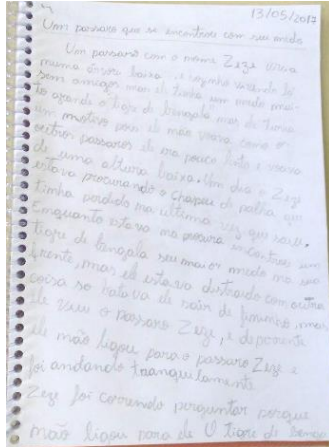 13/05/2017
Um passaro que se encontrou com seu medo
Um passaro com o nome Zeze vivia
numa árvore baixa, sozinho
sem amigos mas ele tinha um medo mui-
to grande o tigre de bengala mas ele tinha
um motivo pois ele não voava como os
outros passaros ele era pouco e voava
de uma altura baixa. Um dia o Zeze
estava procurando o chapeu de palha que
tinha perdido na ultima vez que saiu.
Enquanto estava na procura encontrou um
tigre de bengala seu maior medo na sua
frente, mas ele estava distraido com outra
coisa so fatava ele sair de fininho, mas
ele viu o passaro Zeze, e de
ele não ligou para o passaro Zeze e
foi andando tranquilamente
Zeze foi correndo perguntar porque
não ligou para ele O tigre de benga